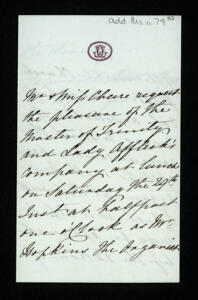 Add Ms a. 79
Mr & Miss Cheere request
the pleasure of the
Master of Trinity
and Lady Affleck's
company at lunch
on Saturday the 29th
Inst at halfpast
one o'Clock as Mr
Hopkins the Organist